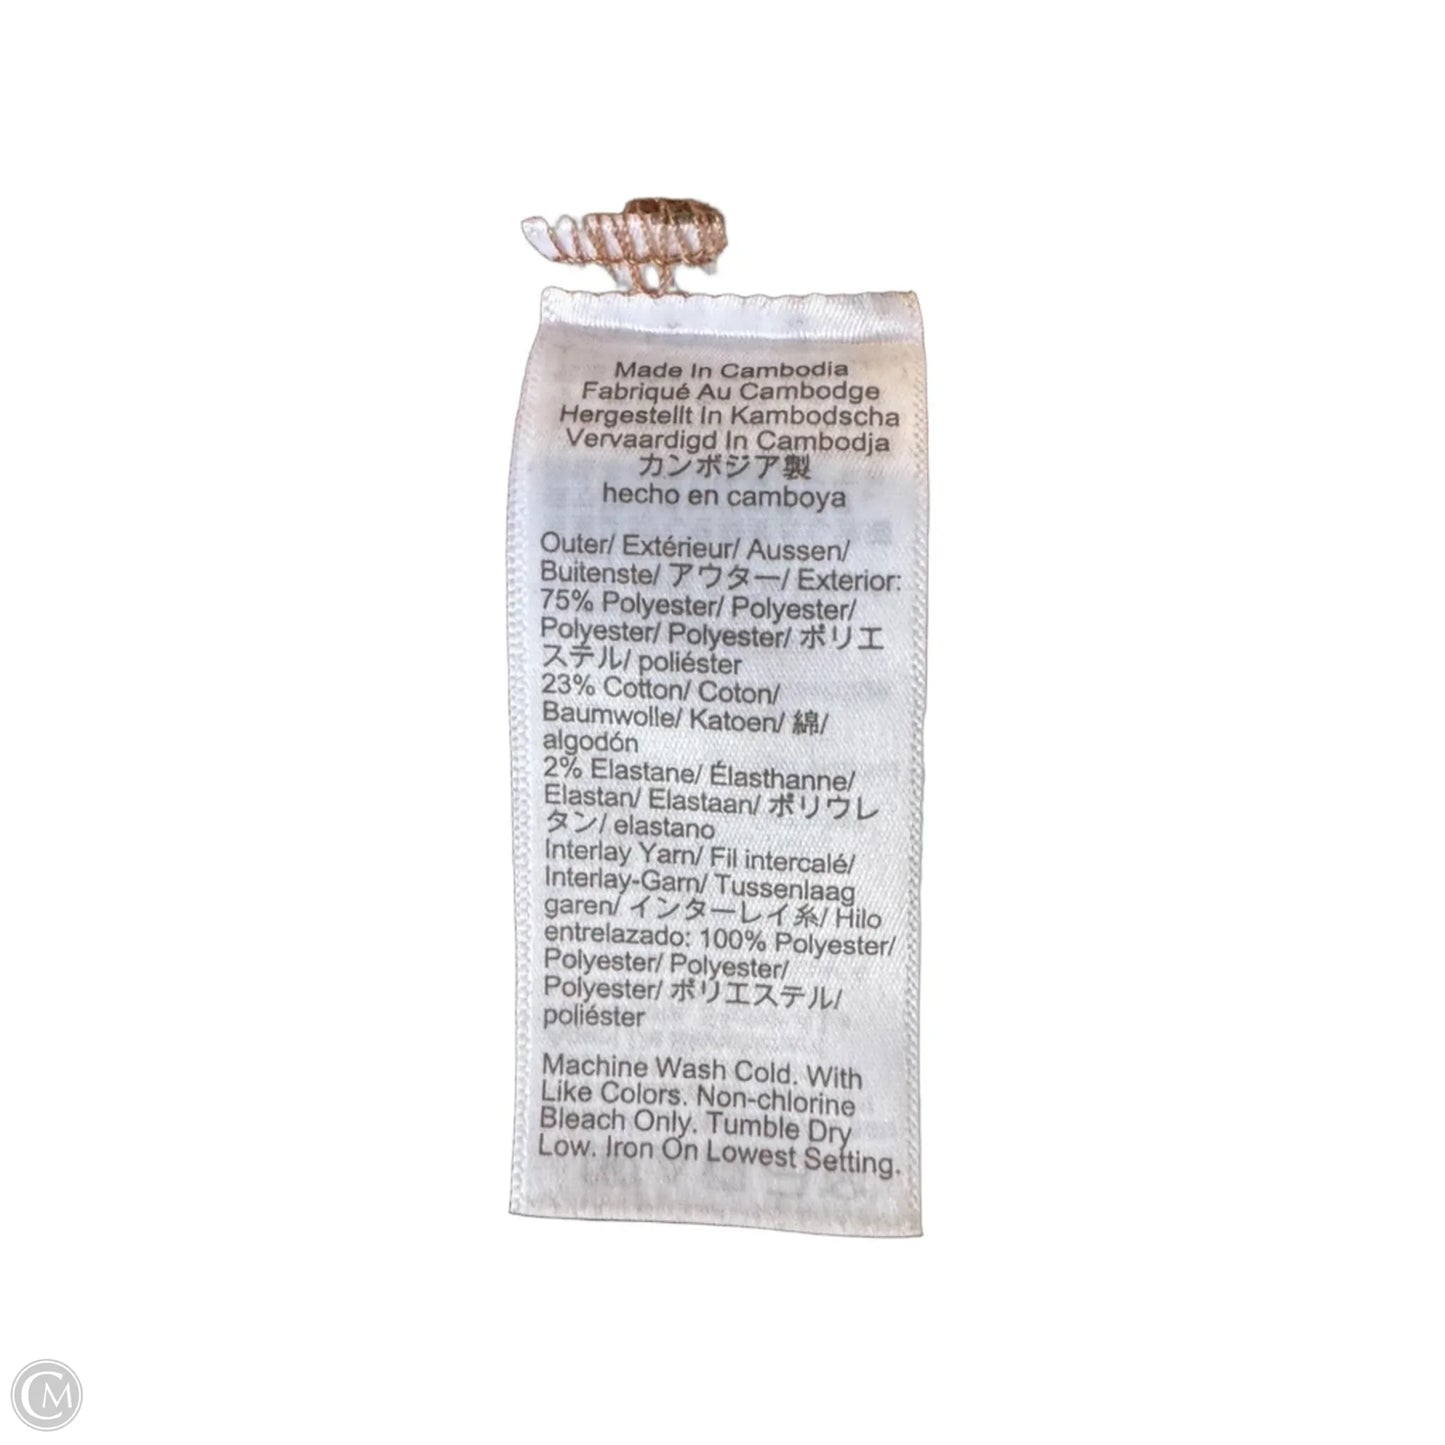 Made In Cambodia
Fabriqué Au Cambodge
Hergestellt In Kambodscha
Vervaardigd In Cambodja
カンボジア製
hecho en camboya
Outer/ Extérieur/ Aussen/
Buitenste/ アウター/ Exterior:
75% Polyester/ Polyester/
Polyester/ Polyester/ ポリエ
ステル/ poliéster
23% Cotton/ Coton/
Baumwolle/ Katoen/ 綿/
algodón
2% Elastane/ Élasthanne/
Elastan/ Elastaan/ ポリウレ
タン/ elastano
Interlay Yarn/ Fil intercalé/
Interlay-Garn/ Tussenlaag
garen/ インターレイ糸/ Hilo
entrelazado: 100% Polyester/
Polyester/ Polyester/
Polyester/ ポリエステル/
poliéster
Machine Wash Cold. With
Like Colors. Non-chlorine
Bleach Only. Tumble Dry
Low. Iron On Lowest Setting.
CM